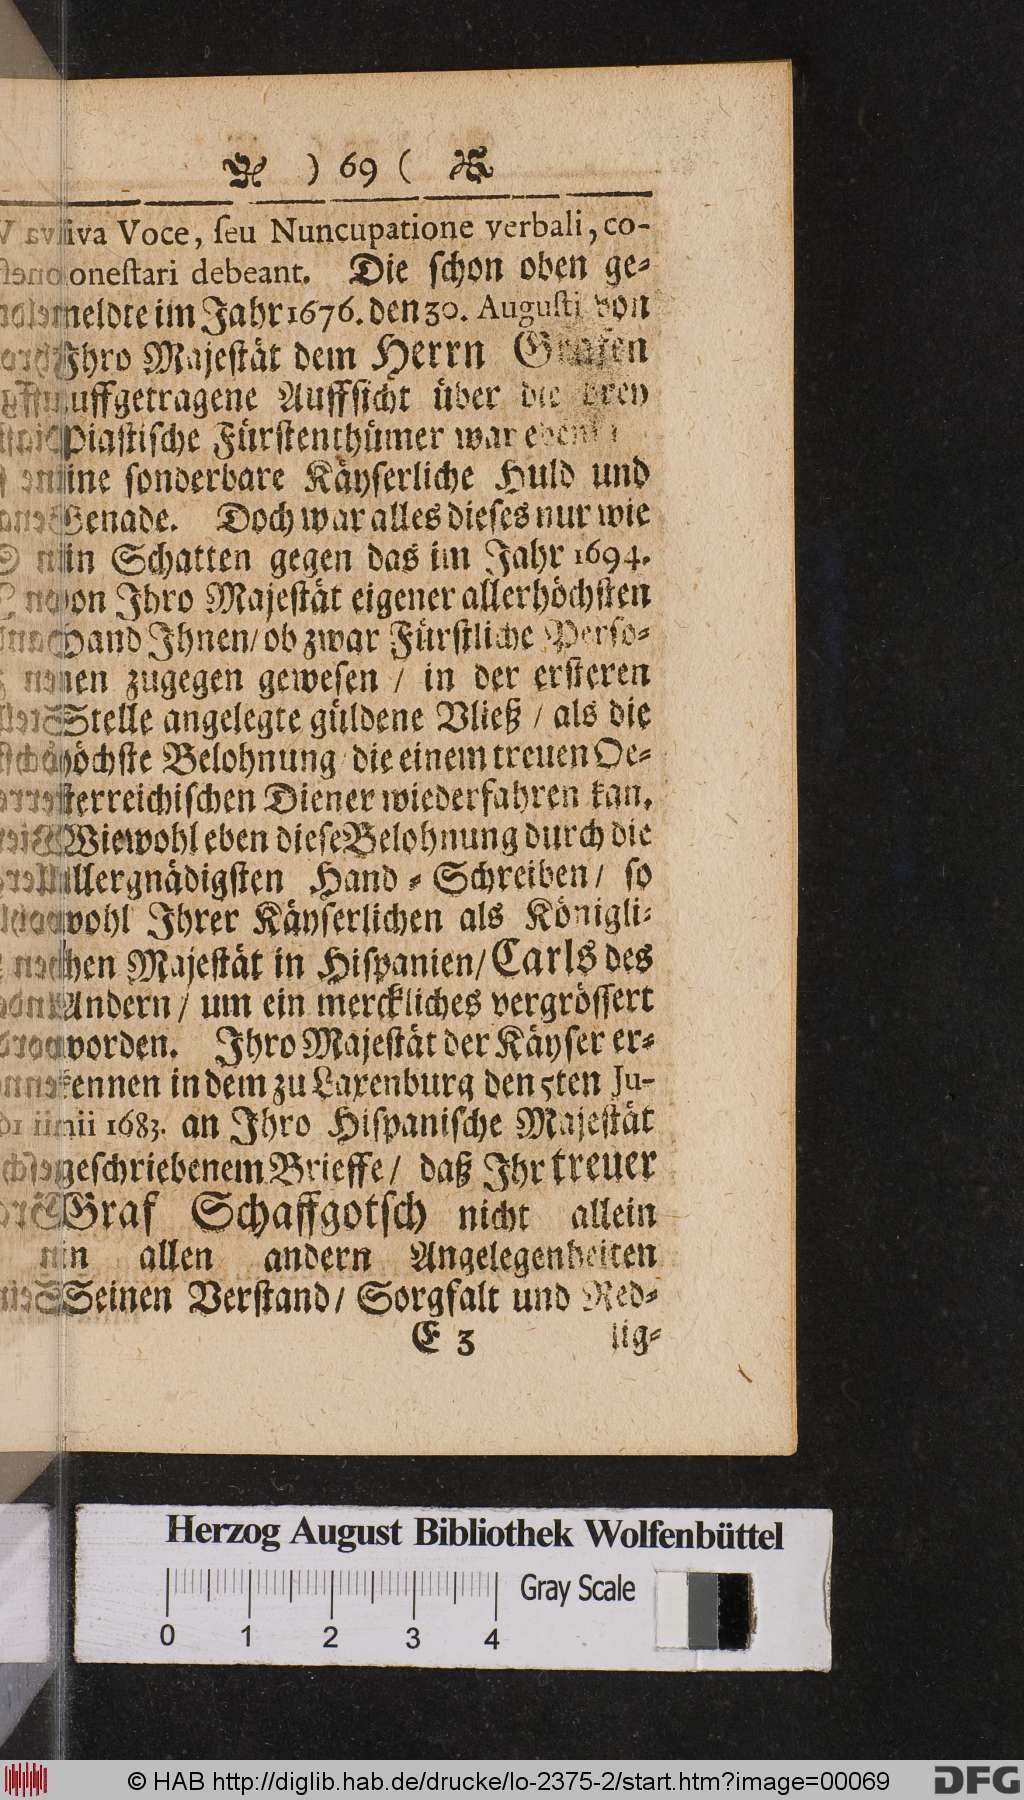 ) 69 (
viva Voce, ſeu Nuncupatione verbali, co-
oneſtari debeant. Die ſchon oben ge-
meldte im Jahr 1676. den 30. Auguſti von
Ihro Majeſtät dem Herrn Grafen
auffgetragene Auffſicht über die drey
Piaſtiſche Fürſtenthümer war
eine ſonderbare Käyſerliche Huld und
Genade. Doch war alles dieſes nur wie
ein Schatten gegen das im Jahr 1694.
von Ihro Majeſtät eigener allerhöchſten
Hand Ihnen/ ob zwar Fürſtliche Perſo-
nen zugegen geweſen / in der erſteren
Stelle angelegte güldene Vließ / als die
höchſte Belohnung die einem treuen Oe-
ſterreichiſchen Diener wiederfahren kan.
Wiewohl eben dieſe Belohnung durch die
allergnädigſten Hand-Schreiben/ ſo
wohl Ihrer Käyſerlichen als Königli-
chen Majeſtät in Hiſpanien/ Carls des
Andern/ um ein merckliches vergröſſert
worden. Ihro Majeſtät der Käyſer er-
kennen in dem zu Laxenburg den 5ten Ju-
nii 1683. an Ihro Hiſpaniſche Majeſtät
geſchriebenem Brieffe/ daß Ihr treuer
Graf Schaffgotſch nicht allein
in allen andern Angelegenheiten
Seinen Verſtand/ Sorgfalt und Red-
E 3 lig-
Herzog August Bibliothek Wolfenbüttel
Gray Scale
0 1 2 3 4
© HAB http://diglib.hab.de/drucke/lo-2375-2/start.htm?image=00069 DFG